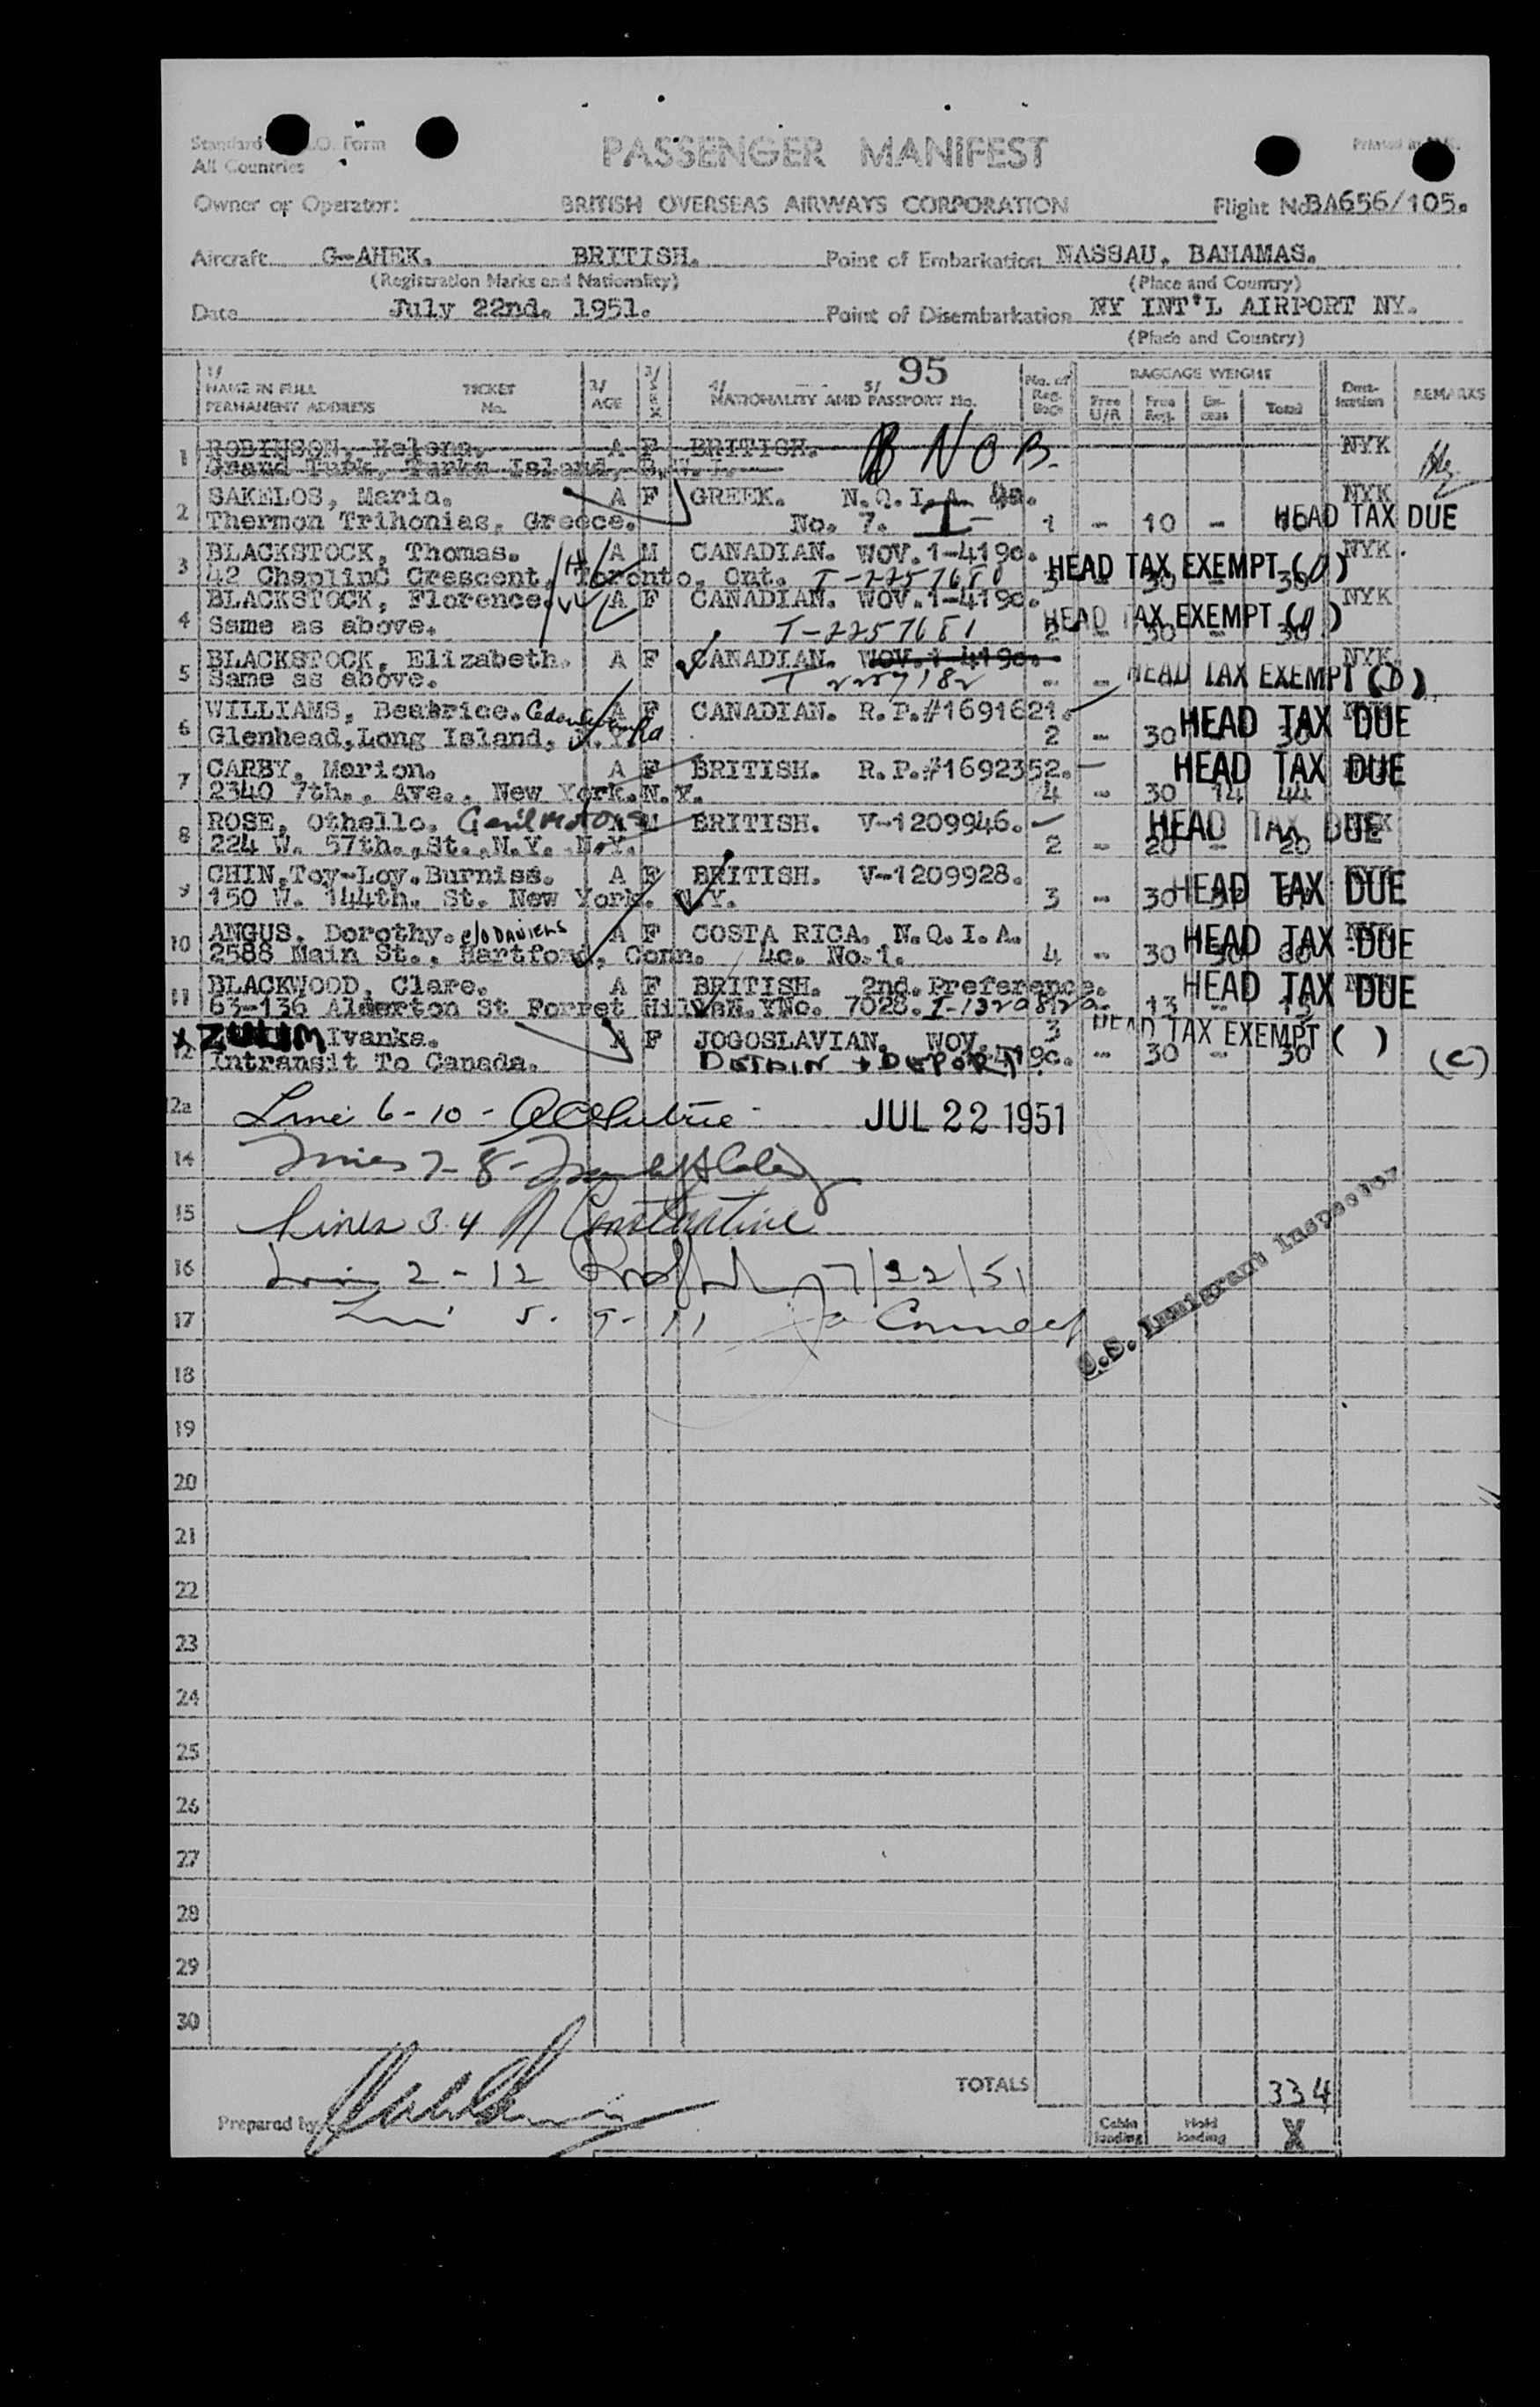 Standard I.C.A.O. Form
All Countries
PASSENGER MANIFEST
Printed in
Owner or Operator: BRITISH OVERSEAS AIRWAYS CORPORATION Flight No BA656/105.
Aircraft G-AHEK. BRITISH. Point of Embarkation NASSAU, BAHAMAS.
(Registration Marks and Nationality) (Place and Country)
Date July 22nd. 1951. Point of Disembarkation NY INT'L AIRPORT NY.
(Place and Country)
95
1/ NAME IN FULL PERMANENT ADDRESS TICKET No. 2/ AGE 3/ SEX 4/ 5/ NATIONALITY AND PASSPORT No. No. of Bags BAGGAGE WEIGHT Free U/R Free Reg. Excess Total Destination REMARKS
1 ROBINSON, Helena. A F BRITISH. N O B. NYK
Grand Turk, Turks Island, B.W.I.
2 SAKELOS, Maria. A F GREEK. N.Q.I.A. 4c. NYK
Thermon Trihonias, Greece. No. 7. I- 1 - 10 - 10 HEAD TAX DUE
3 BLACKSTOCK, Thomas. A M CANADIAN. WOV.1-419c. NYK
42 Chaplin Crescent, Toronto, Ont. T-2257680 30 - 30 HEAD TAX EXEMPT (D)
4 BLACKSTOCK, Florence. A F CANADIAN. WOV.1-419c. NYK
Same as above. T-2257681 2 - 30 - 30 HEAD TAX EXEMPT (D)
5 BLACKSTOCK, Elizabeth. A F CANADIAN. WOV.1-419c. NYK
Same as above. - - HEAD TAX EXEMPT (D)
6 WILLIAMS, Beatrice. A F CANADIAN. R.P.#1691621.
Glenhead, Long Island, N.Y. 2 - 30 - 30 HEAD TAX DUE
7 CARBY, Marion. A F BRITISH. R.P.#1692352. HEAD TAX DUE
2340 7th., Ave., New York.N.Y. 4 - 30 14 44
8 ROSE, Othello. A M BRITISH. V-1209946. HEAD TAX DUE
224 W. 57th.,St.,N.Y. N.Y. 2 - 20 - 20
9 CHIN,Toy-Loy.Burniss. A F BRITISH. V-1209928.
150 W. 144th. St. New York. N.Y. 3 - 30 HEAD TAX DUE
10 ANGUS, Dorothy. c/o DANIELS A F COSTA RICA. N.Q.I.A.
2588 Main St., Hartford, Conn. 4c. No.1. 4 - 30 HEAD TAX DUE
11 BLACKWOOD, Clare. A F BRITISH. 2nd.Preference.
63-136 Alderton St Forret Hills.N.Y No. 7028. - 13 - 13 HEAD TAX DUE
12 x ZULIM Ivanka. A F JOGOSLAVIAN. WOV. 3 HEAD TAX EXEMPT ( )
Intransit To Canada. DETAIN + DEPORT 419c. - 30 - 30 (C)
12a Line 6-10- JUL 22 1951
14 Lines 7-8-
15 Lines 3-4 Constantine
16 2-12 7/22/51
17 5-9-11
U.S. Immigrant Inspector
18
19
20
21
22
23
24
25
26
27
28
29
30
TOTALS 334
Prepared by Cabin loading Hold loading X